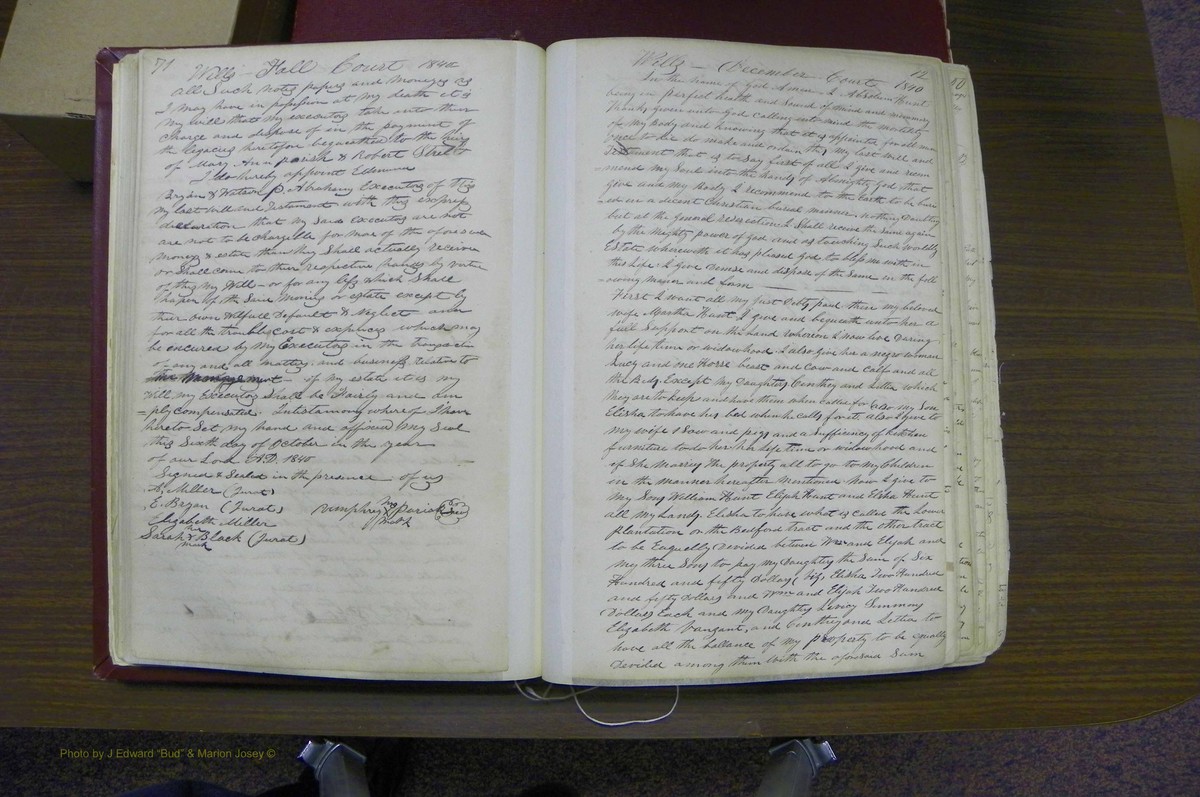 71 Wills - Fall Court 1840
all Such notes papers and moneyes as
I may have in possession at my death it is
my will that my executors take unto their
Charge and dispose of in the payment of
the legacies heretofore bequeathed to the heirs
of Mary Ann parish & Robert
I do hereby appoint
Bryan & Watson P. Abraham Executors of this
my last will and Testament with this express
declaration that my Said Executors are not
are not to be chargable for more of the aforesaid
money & estate than they Shall actually receive
or Shall come to their respective hands by virtue
of this my Will - or for any loss which Shall
hapen of the Same Money or estate except by
their own willfull Default & neglect and
for all the trouble cost & expences which may
be encured by my Executors in the transact
of any and all matters and business relative to
the management of my estate it is my
will my Executors Shall be Fairly and am
=ply compensated. In testamony whereof I have
hereto Set my hand and affixed my Seal
this Sixth day of October in the year
of our Lord A.D. 1840
Signed & Sealed in the presence of us
Miller (Jurat)
E. Bryan (Jurat) Humphrey his X mark Parish Seal
Elizabeth Miller
Sarah her X mark Black (Jurat)
Wills - December Court 1840 72
In the name of God Amen I Absolum Hunt
being in perfect health and Sound of mind and memory
Thanks given unto God Calling unto mind the mortality
of my Body and knowing that it is appointed for all men
once to die do make and ordain this my last Will and
Testament that is to Say first of all I give and recom
mend my Soul into the hands of Almighty God that
gave it and my Body I recommend to the Earth to be buri
-ed in a decent Christian burial manner nothing doubting
but at the general resurrection I Shall receive the Same again
by the mighty power of God and as touching Such worldly
Estate wherewith it has pleased God to bless me with in
this life I give Demise and dispose of the Same in the foll
-owing manor and form
First I want all my just Debts paid then my beloved
wife Martha Hunt I give and bequeath unto her a
full Support on the Land whereon I now live During
her life time or widowhood I also give her a negro woman
Judy and one Horse beast and Cow and Calf and all
the Beds Except my Daughters Cinthey and Lettice which
they are to keep and have them when called for also my Son
Elisha to have his bed when he calls for it also I give to
my wife 1 Sow and pigs and a sufficiency of kitchen
furniture to do her her life time or widowhood and
if She Marrys the property all to go to my Children
in the manner hereafter mentioned Now I give to
my Sons William Hunt Elijah Hunt and Elisha Hunt
all my Lands Elisha to have what is called the Lower
plantation or the Bedford tract and the other tract
to be Eaguelly Devided between Wm and Elijah and
my three Sons to pay my Daughters the Sum of Six
Hundred and fifty Dollars (viz) Elisha Two Hundred
and fifty Dollars and Wm and Elijah Two Hundred
Dollars Each and my Daughters Simmons
Elizabeth Vanzant, and Cinthey and Lettice to
have all the ballance of my property to be equally
Devided among them With the aforesaid Sum
Photo by J Edward "Bud" & Marion Josey ©